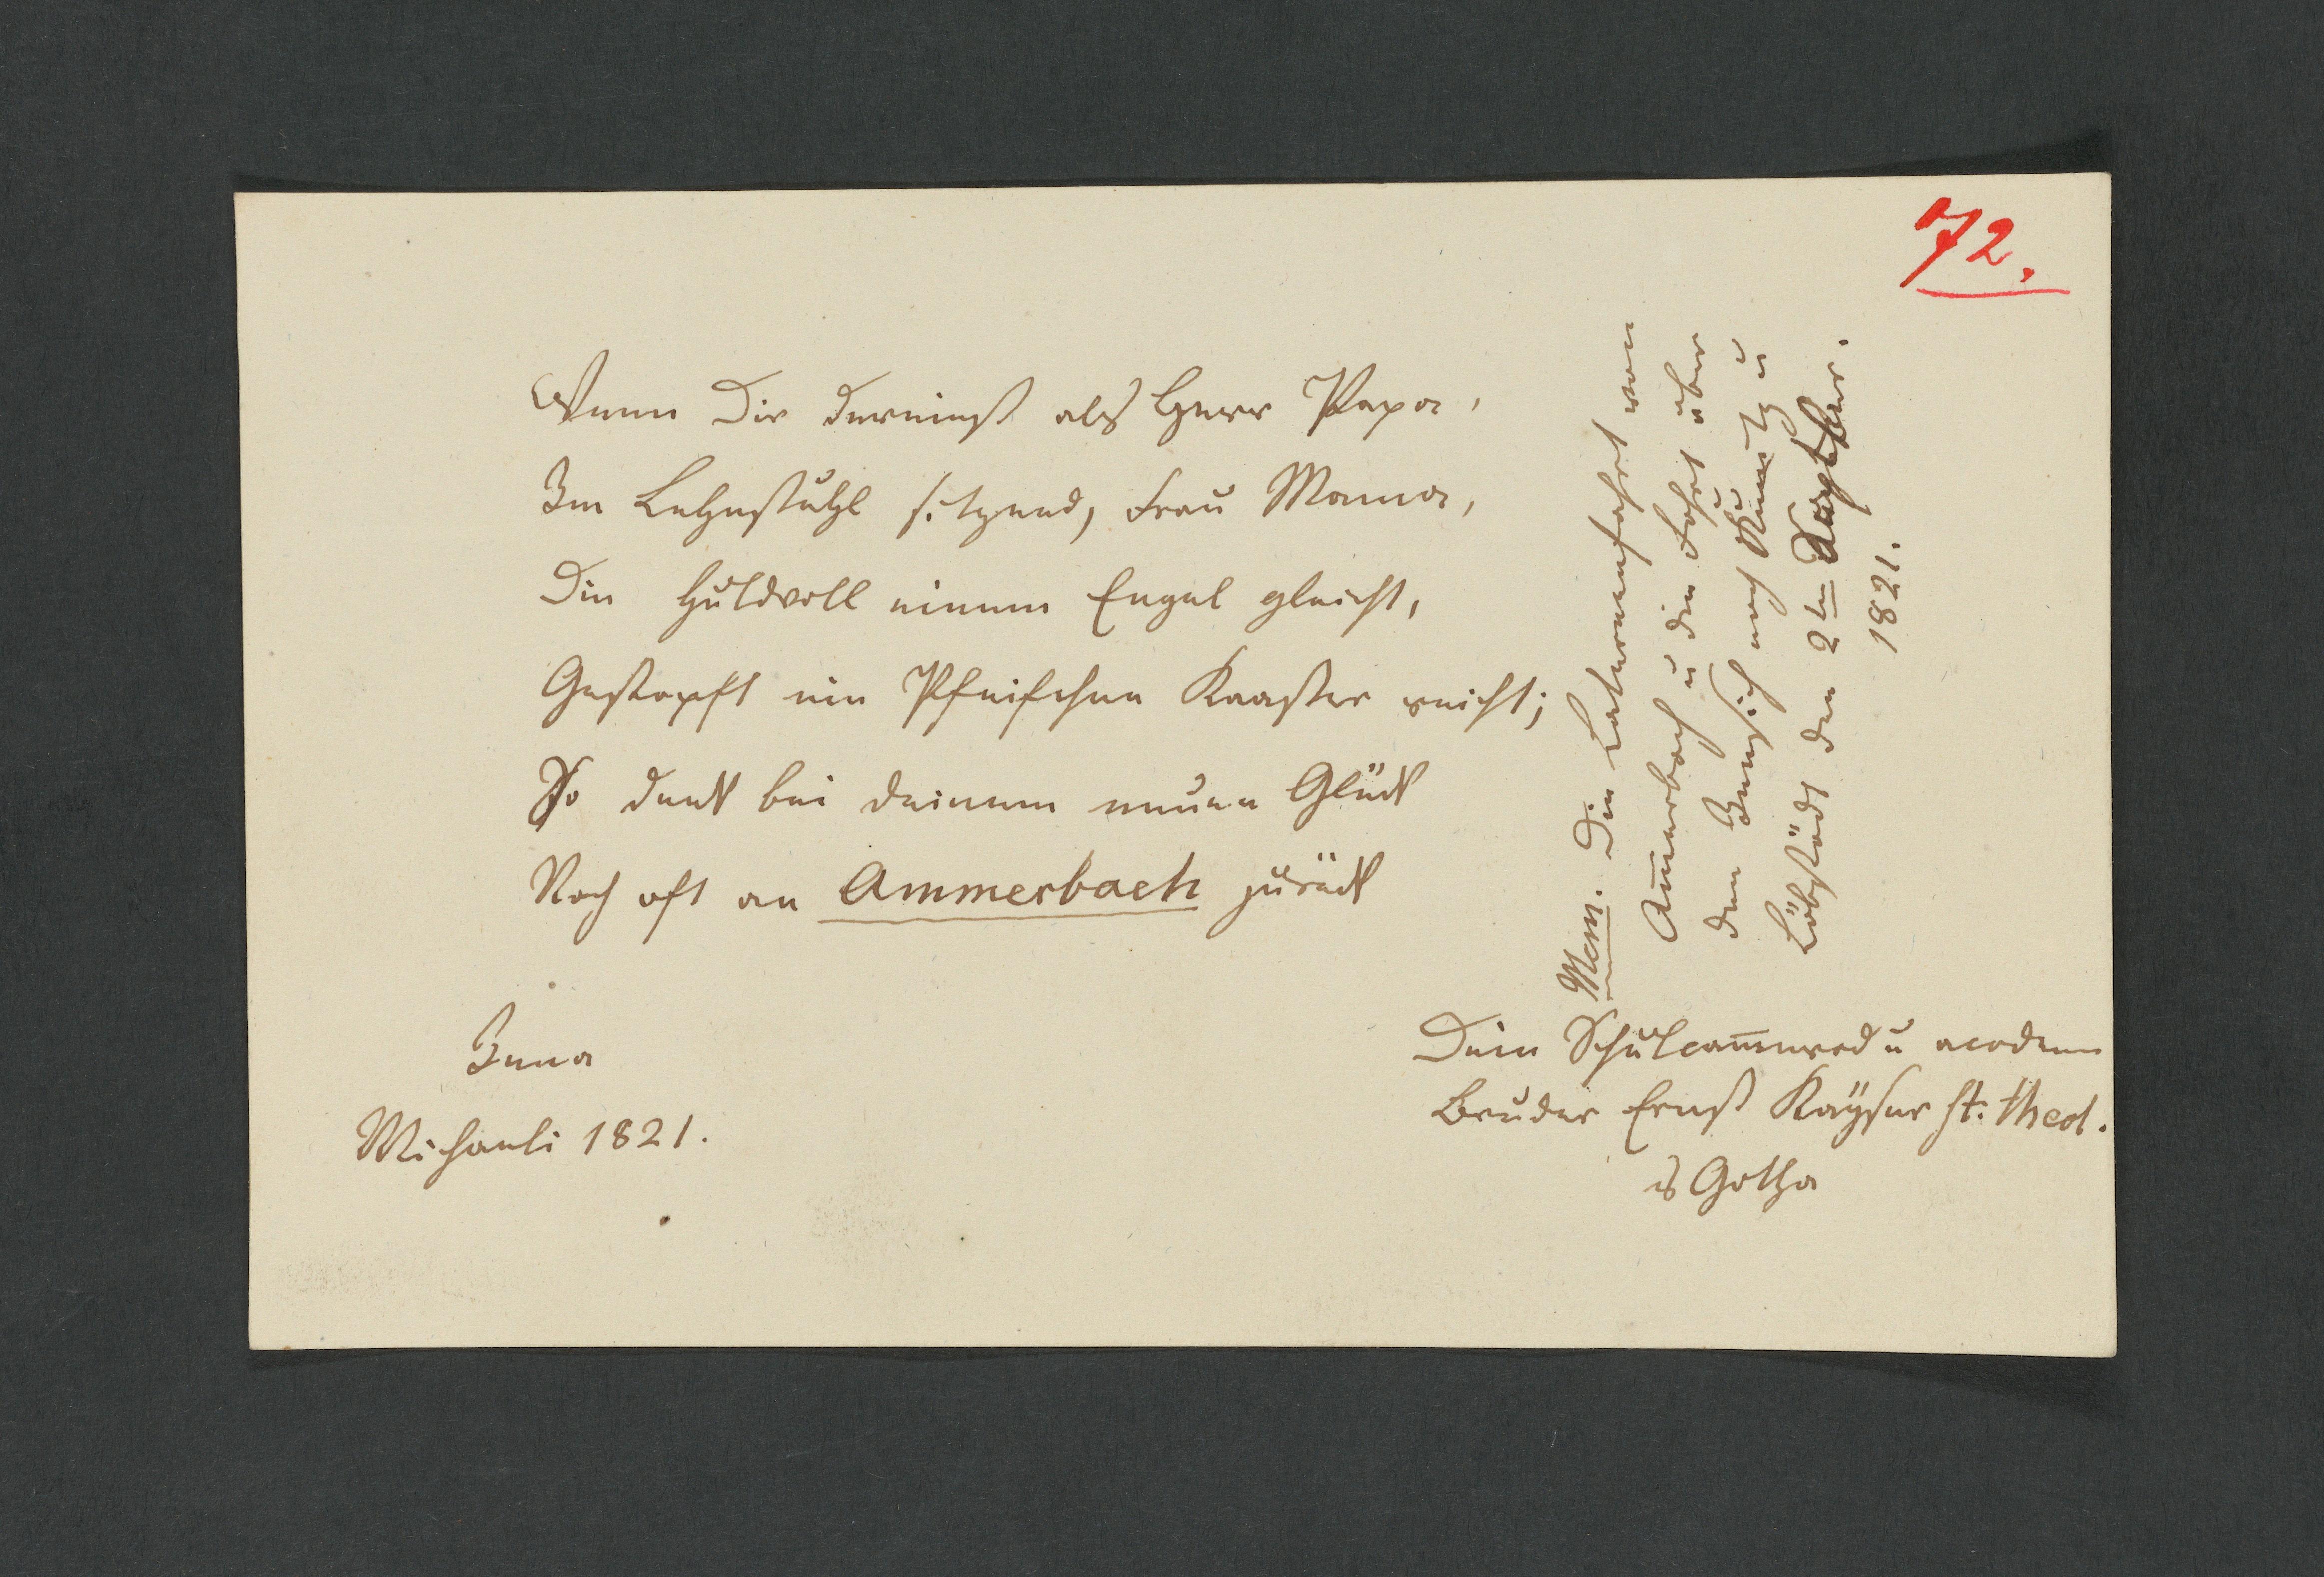 72.
Wenn Dir dereinst als Herr Papa,
Im Lehnstuhl sitzend, Frau Mama,
Die huldvoll einem Engel gleicht,
Gestopft ein Pfeifchen Knaster reicht;
So denk bei deinem neuen Glück
Noch oft an Ammerbach zurück
Jena
Michaeli 1821.
Mem. Die Laternenfahrt von
Am̅erbach u die Fahrt über
den Jenzich nach Kunitz u
Löbstädt den 2ten
1821.
Dein Schulcam̅erad u academ
Bruder Ernst Kayser st. theol.
as Gotha